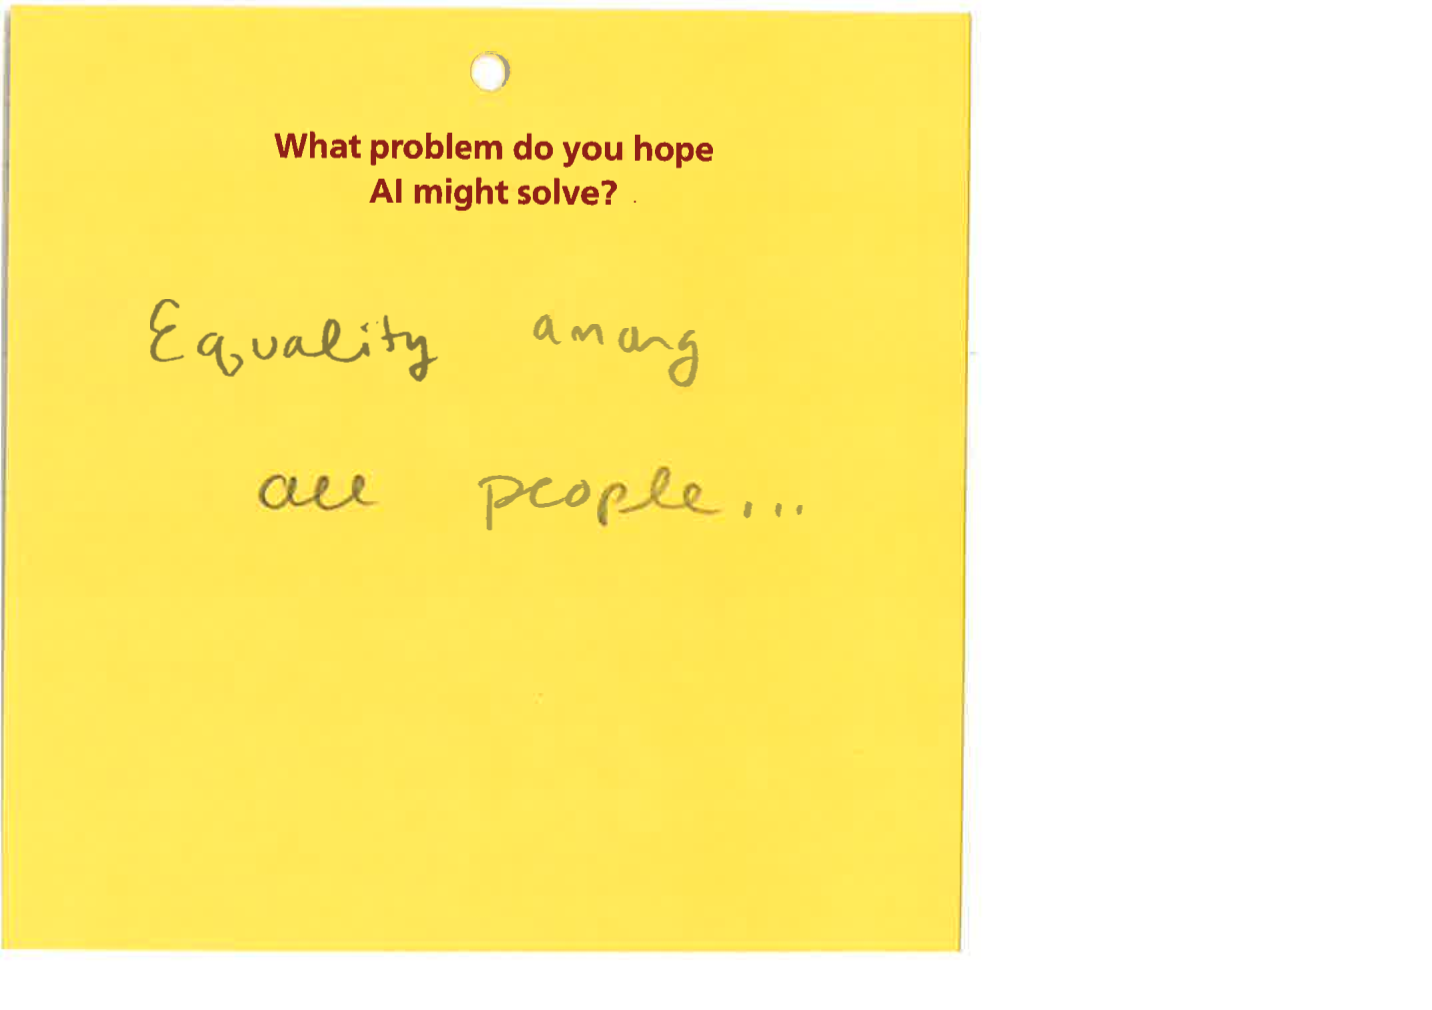 What problem do you hope
AI might solve?
Equality among
all people...